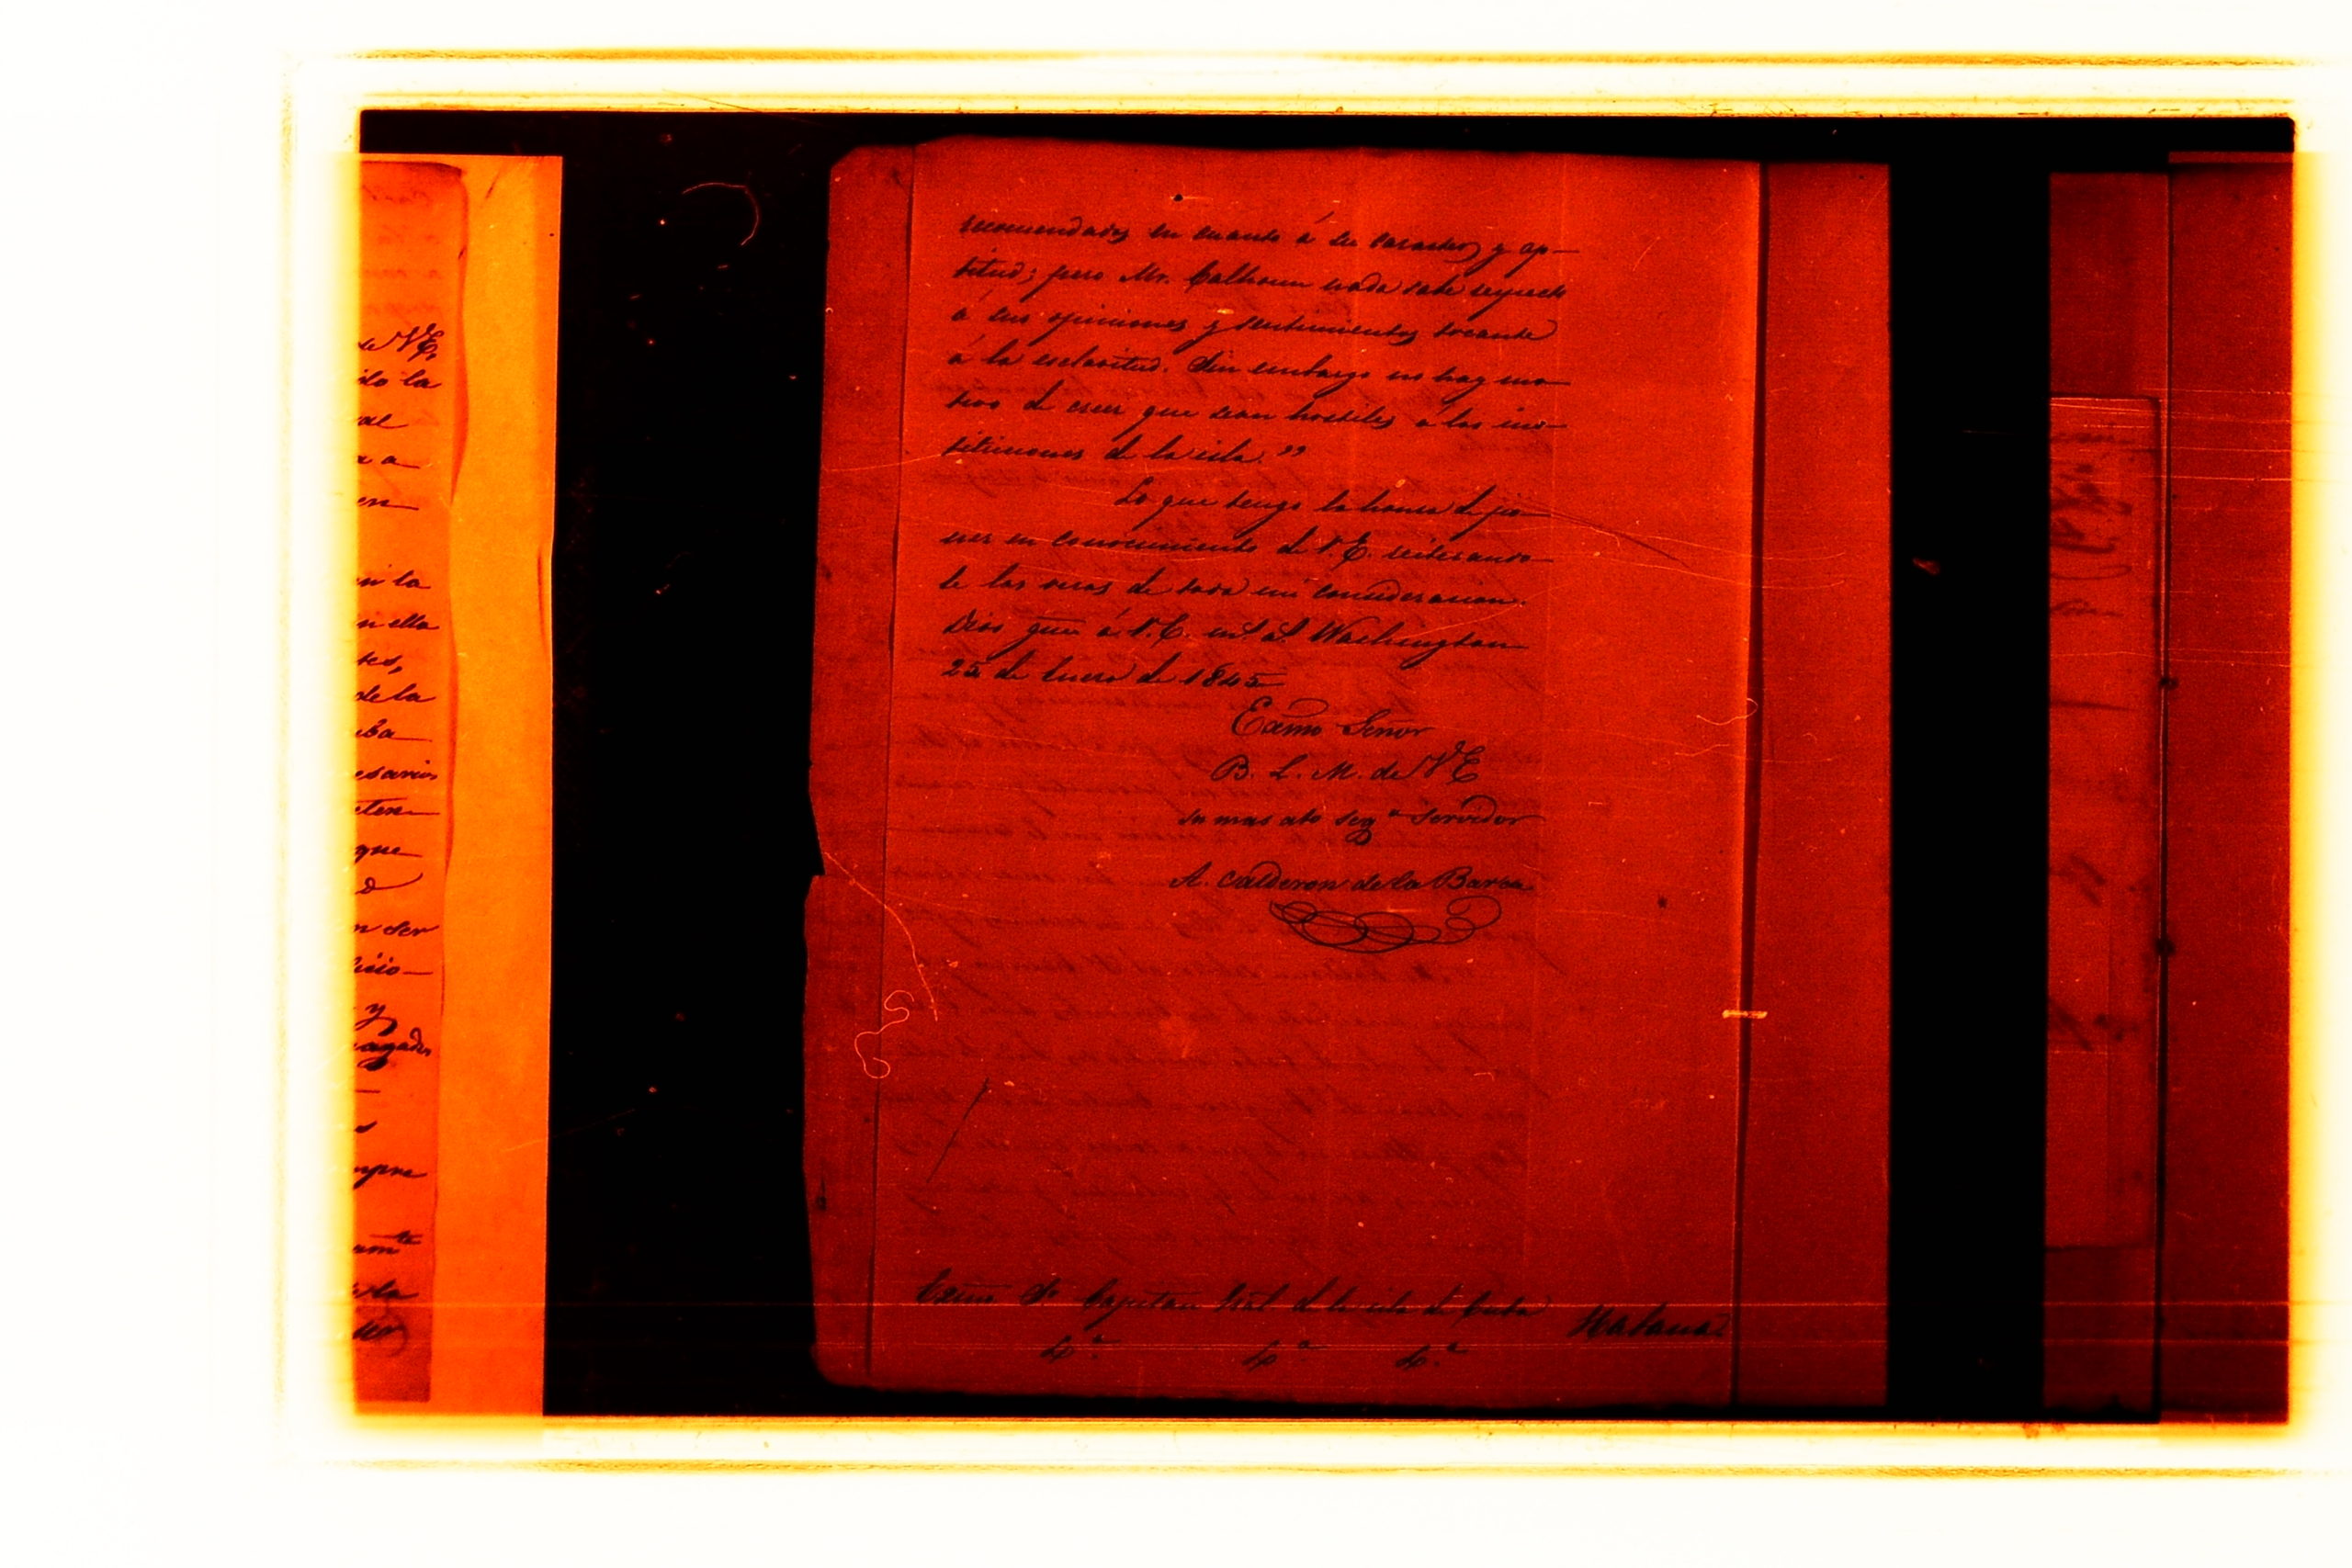 de VE,
ito la
al
a a
en
en la
n ella
tes,
de la
uba
esarios
eten
que
n ser
licio
y
agados
mpre
amte
la
recomendados en cuanto á su caracter y ap-
titud; pero Mr. Calhoun nada sabe respecto
á sus opiniones y sentimientos tocante
á la esclavitud. Sin embargo no hay mo-
tivo de creer que sean hostiles á las ins-
tituciones de la isla."
Lo que tengo la honra de po-
ner en conocimiento de V.E. reiterando-
le las veras de toda mi consideracion.
Dios gue á V.E. ms as Washington
25 de Enero de 1845
Exmo Señor
B. L. M. de VE
su mas ato segº servidor
A. Calderon de la Barca
Exmo Sr Capitan Gral de la isla de Cuba Habana
&ª &ª &ª